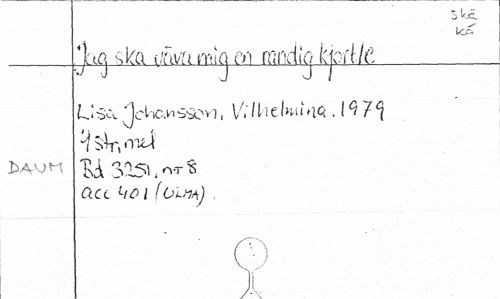 skä
kå
Jag ska väva mig en randig kjortle
Lisa Johansson, Vilhelmina. 1979
4 str, mel
DAUM Bd 3251, nr 8
acc 401 (ULMA)